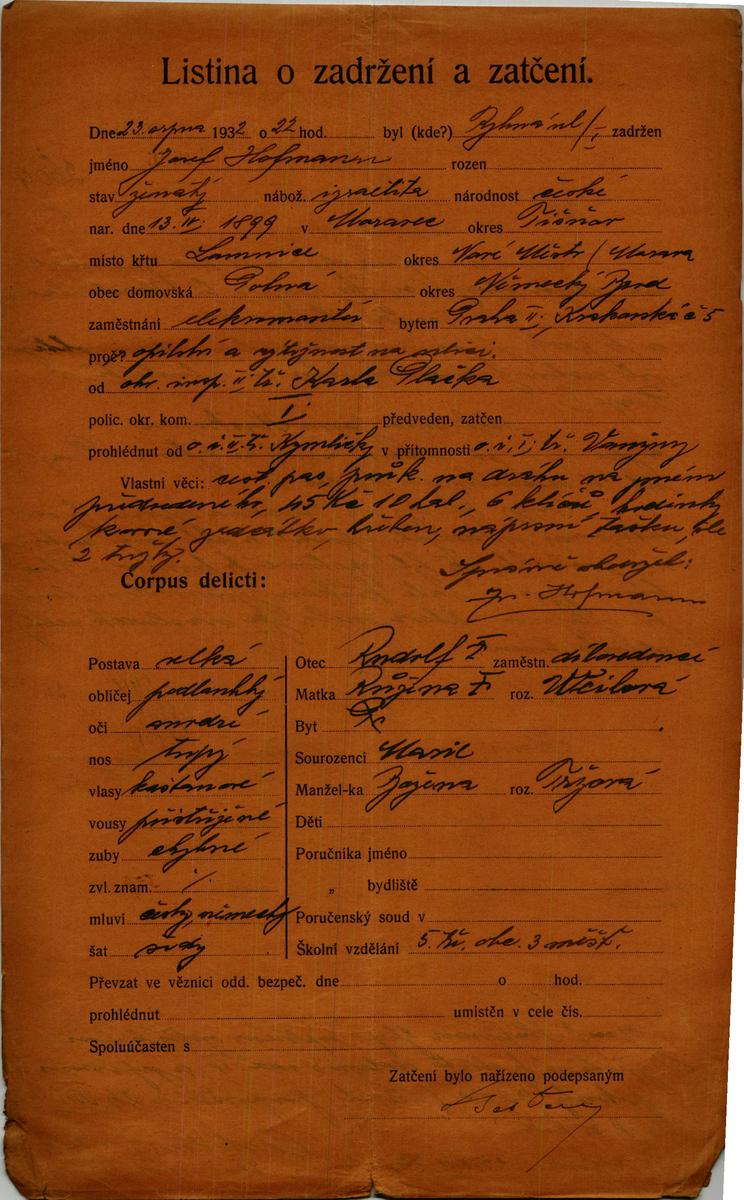 Listina o zadržení a zatčení.
Dne 23. srpna 1932 o 22 hod. byl (kde?) Rybná ul/I. zadržen
jméno Josef Hofmann rozen
stav ženatý nábož. izraelita národnost české
nar. dne 13. IV. 1899 v Moravec okres Tišnov
místo křtu Lomnice okres Nové Město / Morava
obec domovská Polná okres Německý Brod
zaměstnání elektromontér bytem Praha II., Krakovská č 5
proč? opilství a výtržnost na ulici.
od okr. insp. II. tř. Karla Plačka
polic. okr. kom. I. předveden, zatčen
prohlédnut od o. i. II. tř. Kymličky v přítomnosti o. i. I. tř.
Vlastní věci: cest. pas, průk. na dráhu na jméno
předvedeného, 45 Kč 10 hal., 6 klíčů, hodinky
kovové, zrcátko, hřeben, náprsní tašku,
2
Správně obdržel:
Corpus delicti:
Jos. Hofmann
Postava velká Otec Rudolf † zaměstn.
obličej podlouhlý Matka Růžena † roz.
oči modré Byt
nos tupý Sourozenci Marie
vlasy kaštanové Manžel-ka Božena roz.
vousy přistřižené Děti
zuby chybné Poručníka jméno
zvl. znam. ·/. „ bydliště
mluví česky, německy Poručenský soud v
šat šedý Školní vzdělání 5. tř. obc. 3 měšť.
Převzat ve věznici odd. bezpeč. dne o hod.
prohlédnut umistěn v cele čis.
Spoluúčasten s
Zatčení bylo nařízeno podepsaným